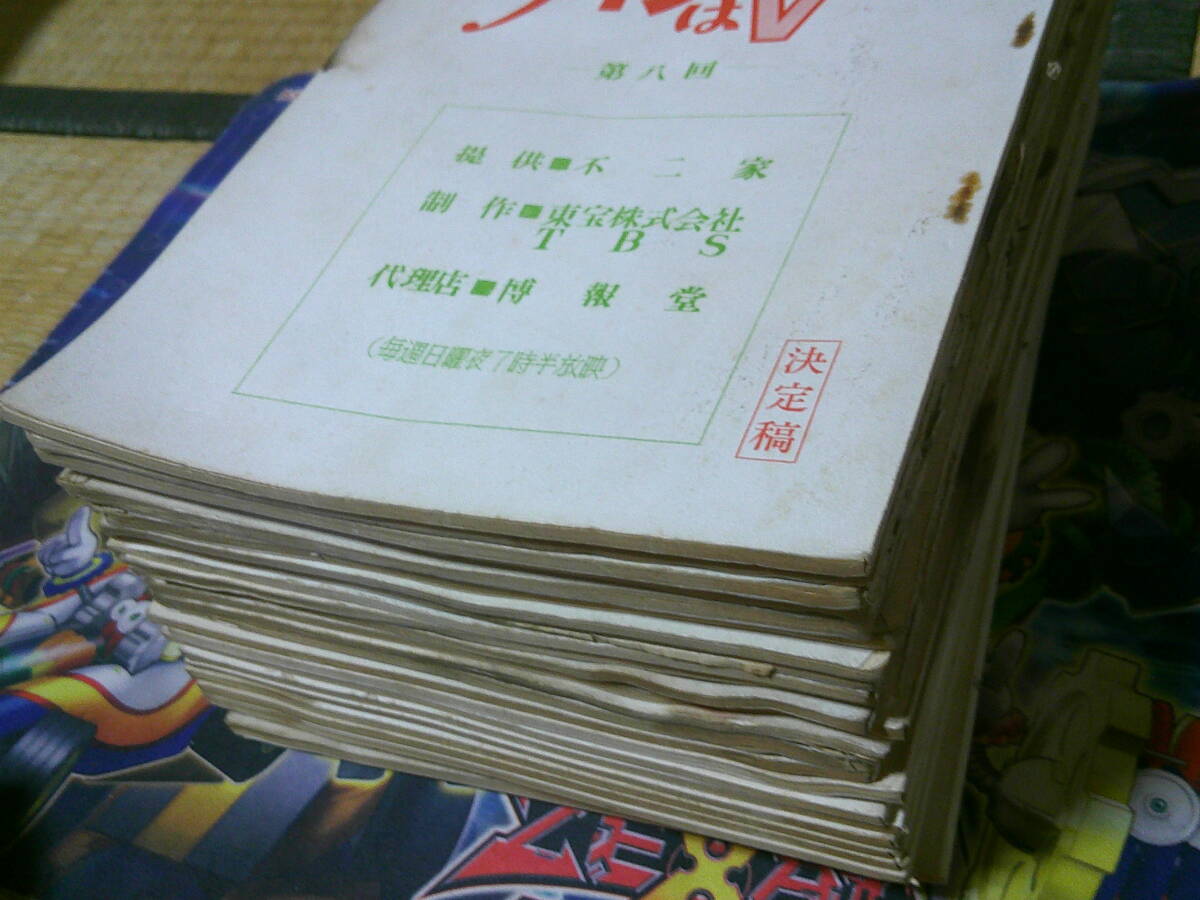 はV
第八回
提供■不二家
制作■東宝株式会社
TBS
代理店■博報堂
(毎週日曜夜7時半放映)
決定稿